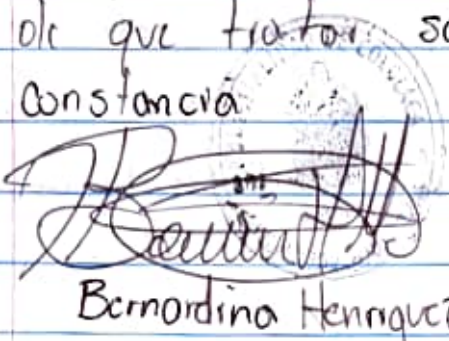 de que tratar se
Constancia
Bernardina Henriquez